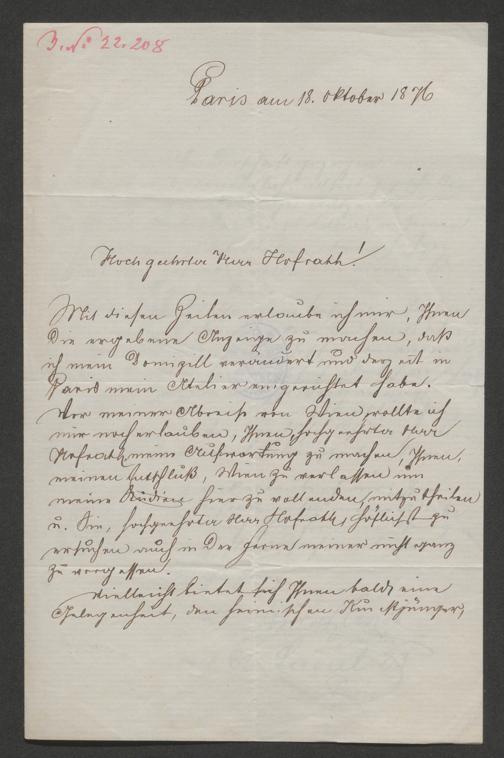 J. No 22.208
Paris am 18. Oktober 1876
Hochgeehrter Herr Hofrath!
Mit diesen Zeilen erlaube ich mir, Ihnen
die ergebene Anzeige zu machen, daß
ich mein Domizill verändert und derzeit in
Paris mein Atelier eingerichtet habe.
Vor meiner Abreise von Wien, wollte ich
mir noch erlauben, Ihnen, hochgeehrter Herr
Hofrath, meine Aufwartung zu machen, Ihnen,
meinen Entschluß, Wien zu verlassen um
meine Studien hier zu vollenden, mitzutheilen
u. Sie, hochgeehrter Herr Hofrath, höflichst zu
ersuchen auch in der Ferne meiner nicht ganz
zu vergessen.
Vielleicht bietet sich Ihnen bald eine
Gelegenheit, den heimischen Kunstjünger,